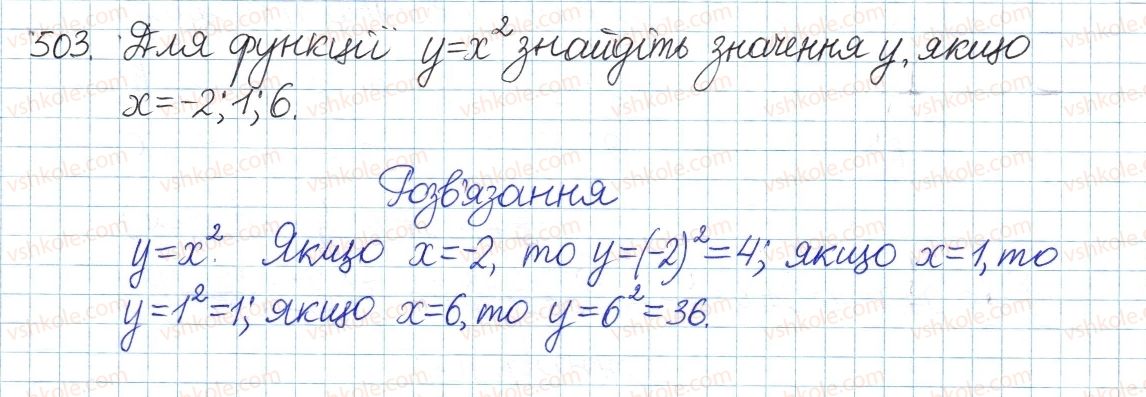 503. Для функції y=x² знайдіть значення y, якщо
x=-2; 1; 6.
Розв'язання
y=x². Якщо x=-2, то y=(-2)²=4; якщо x=1, то
y=1²=1; якщо x=6, то y=6²=36.